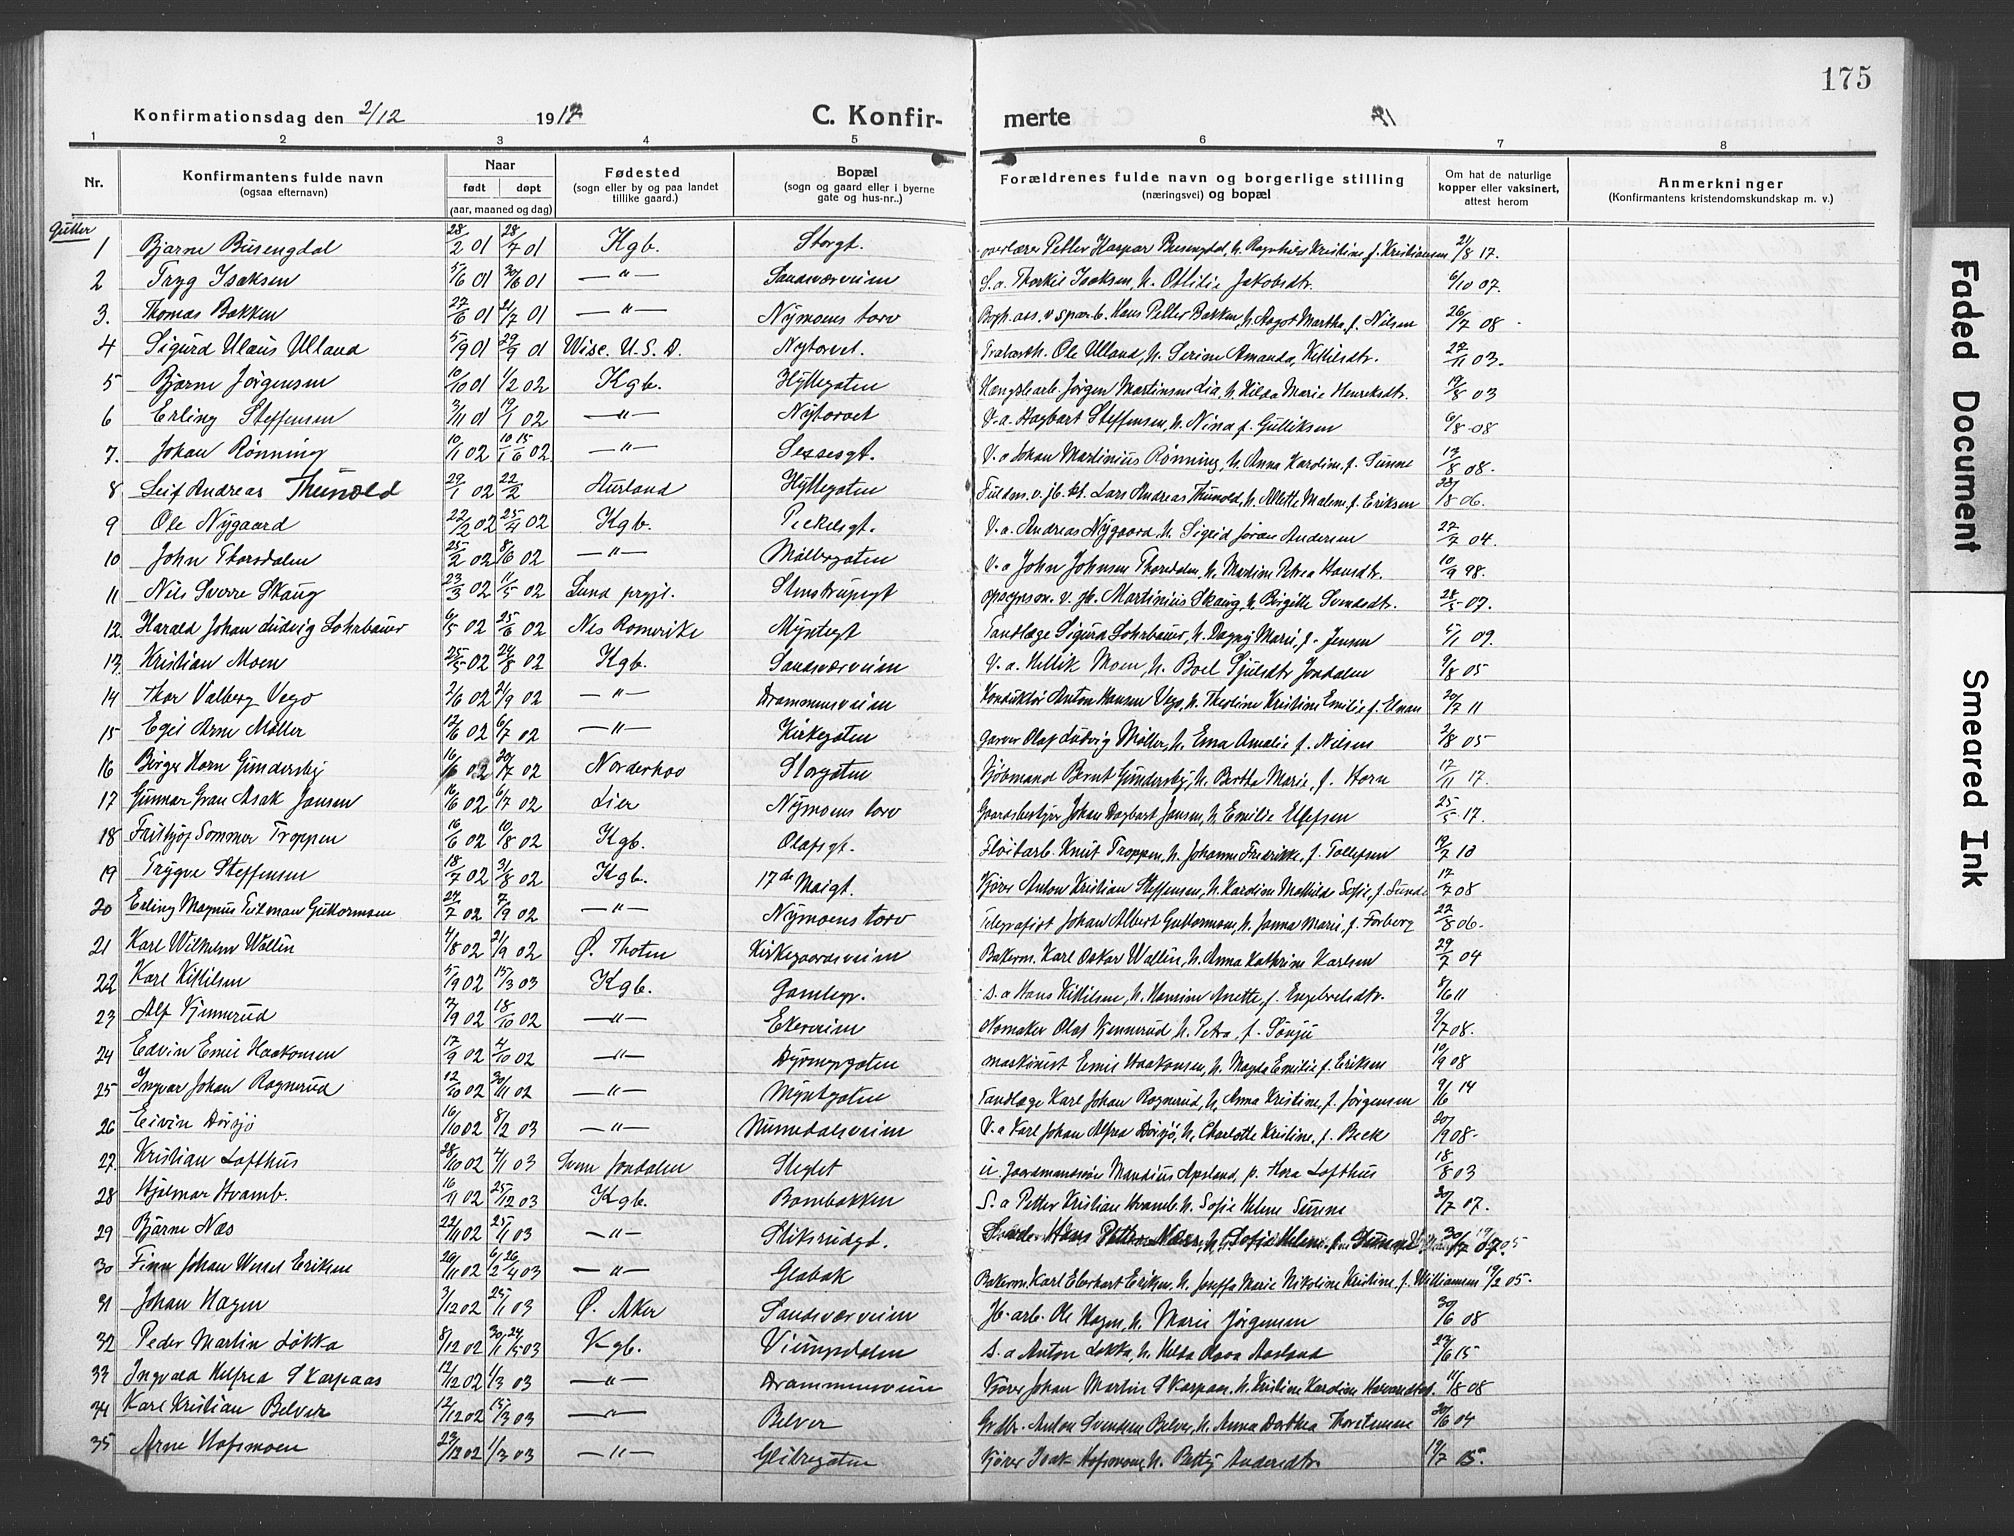 175
Konfirmationsdag den 2/12 1917 C. Konfirmerte
1 2 3 4 5 6 7 8
Nr. Konfirmantens fulde navn (ogsaa efternavn) Naar født døpt (aar, maaned og dag) Fødested (sogn eller by og paa landet tillike gaard.) Bopæl (sogn og gaard eller i byerne gate og hus-nr..) Forældrenes fulde navn og borgerlige stilling (næringsvei) og bopæl Om hat de naturlige kopper eller vaksinert, attest herom Anmerkninger (Konfirmantens kristendomskundskap m. v.)
Gutter
1 Bjarne Busengdal 28/2 01 28/7 01 Kgb. Storgt. overlærer Petter Kaspar Busengdal, h. Ragnhild Kristine f. Kristiansen 21/8 17.
2 Tryg Isaksen 5/6 01 30/6 01 —"— Sandsværveien S.a. Thorkil Isaksen, h. Ottilie Jakobsdtr. 6/10 07.
3. Thomas Bakken 27/6 01 21/7 01 —"— Nymoens torv Bogh. ass. v sparb. Hans Petter Bakken, h. Aagot Martha, f. Nilsen 26/7 08
4 Sigurd Ulaus Ulland 5/9 01 29/9 01 Wisc. U.S.A. Nytorvet. Ole Ulland, h. Serine Amanda, Kittilsdtr. 27/11 03.
5 Bjarne Jørgensen 10/10 01 1/2 02 Kgb. Hyttegaten Jørgen Martinsen Lia, h. Hilda Marie Henriksdtr. 19/8 03
6 Erling Steffensen 3/11 01 19/1 02 —"— Nytorvet V.a. Hagbart Steffensen, h. Nina f. Gulliksen 6/8 08
7. Johan Rønning 10/11 02 10/1 15/6 02 —"— Sessesgt. V.a Johan Martinius Rønning, h. Anna Karoline f. Sunne 13/8 08.
8 Leif Andreas Thunold 29/1 02 22/2 Aurland Hyttegaten Fuldm. v. jb. kt. Lars Andreas Thunold, h. Alette Malene, f. Eriksen /8 06.
9 Ole Nygaard 22/2 02 25/4 02 Kgb. Peckelsgt. V.a. Andreas Nygaard, h. Sigrid Joran Andersen 27/7 04.
10 John Thorsdalen 25/2 02 8/6 02 —"— Møllergaten V.a John Johnsen Thorsdalen, h. Martine Petrea Hansdtr. 10/9 98.
11 Nils Sverre Skaug 23/3 02 11/5 02 Lund prgjl. Stenstrupsgt opsynsm. v. jb. Martinius Skaug, h. Birgitte Svendsdtr. 28/5 07.
12 Harald Johan Ludvig Lohrbauer 6/5 02 25/6 02 Nes Romerike Myntegt Tandlæge Sigurd Lohrbauer, h. Dagny Marie, f. Jensen 5/1 09.
13 Kristian Moen 25/5 02 24/8 02 Kgb. Sandsværveien V.a. Killik Moen, h. Boel Sjulsdtr Jondalen 9/8 05
14 Thor Valberg Vego 2/6 02 21/9 02 —"— Drammensveien Konduktør Anton Hansen Vego, h. Theoline Kristine Emilie f. Unan 20/7 11
15 Egil Arne Møller 12/6 02 6/7 02 —"— Kirkegaten Garver Olaf Ludvig Møller, h. Ema Amalie f. Nilsen 2/8 05
16 Birger Horn Gundersby 16/6 02 20/7 02 Norderhov Storgaten Kjøbmand Bernt Gundersby, h. Bertha Marie, f. Horn 17/11 17.
17 Gunnar Gran Asak Jansen 16/6 02 6/7 02 Lier Nymoens torv Gaardbestyrer Johan Dagbart Jansen, h. Emilie Ellefsen 25/5 17.
18 Fritkjof Sommer Troppen 16/6 02 10/8 02 Kgb. Olafsgt. Fløtarb. Knut Troppen, h. Johanne Fredrikke, f. Tollefsen 19/7 10
19 Trygve Steffensen 18/7 02 3/8 02 Kgb. 17de Maigt. Kjører Anton Kristian Steffensen, h. Karoline Mathilde Sofie, f. Sunde 17/7 08
20 Erling Magnus Teitman Guttormsen 24/7 02 7/9 02 —"— Nymoens torv Telegrafist Johan Albert Guttormsen, h. Janna Marie, f. Forberg 22/8 06.
21 Karl Wilhelm Wallin 4/8 02 21/9 02 Ø. Thoten Kirkegaardsveien Bakerm. Karl Oskar Wallin, h. Anna Kathrine Karlsen 29/7 04
22 Karl Kittilsen 5/9 02 15/3 03 Kgb. Gamlegr. S.a Hans Kittilsen, h. Hansine Anette, f. Engebretsdtr. 8/6 11
23 Alf Kjennerud 7/9 02 18/10 02 —"— Ekerveien Olaf Kjennerud h. Petra, f. Sønju 9/7 08.
24 Edvin Emil Haakonsen 17/9 02 4/10 02 —"— Dyrmyrgaten maskinist Emil Haakonsen, h. Magda Emilie f. Eriksen 10/9 08
25 Ingvar Johan Ragnerud 12/10 02 30/11 02 —"— Myntgaten Tandlæge Karl Johan Ragnerud, h. Anna Kristine, f. Jørgensen 9/6 14
26 Eivin Dørsjø 16/10 02 8/2 03 —"— Numedalsveien V.a Karl Johan Alfred Dørsjø, h. Charlotte Kristine, f. Beck 20/9 08.
27. Kristian Lofthus 28/10 02 4/1 03 Svene Jondalen Steglet u Gaardmandssøn Mandius Apsland, p. Thea Lofthus 18/8 03
28 Hjalmar Kvamb. 16/11 02 25/12 03 Kgb. Bombakken S.a Petter Kristian Kvamb. h. Sofie Helene Surene 30/7 07.
29 Bjarne Næs 22/11 02 25/1 03 —"— Stiksrudgt. Hans Petter Næss, h. Sofie Helene 30/7 07
30 Finn Johan Wessel Eriksen 29/11 02 6/2 26/4 03 —"— Glabak Bakerm. Karl Eberhart Eriksen, h. Josefa Marie Nikoline Kristine, f. Williamsen 19/2 05.
31 Johan Hagen 3/12 02 25/1 03 Ø. Aker Sandsværveien Jb. arb. Ole Hagen, h. Marie Jørgensen 30/6 08
32 Peder Martin Løkka 8/12 02 30/1 24/5 03 Kgb. Vinmesdalen S.a Anton Løkka, h. Hilda Olava Aasland 23/6 15
33 Ingvald Alfred Skarpaas 12/12 02 1/3 03 —"— Drammensveien Kjører Johan Martin Skarpaas, h. Kristine Karoline Halvorsdtr. 11/8 08
34 Karl Kristian Belver 12/12 02 15/3 03 —"— Belver Grdbr. Anton Svendsen Belver, h. Anna Dorthea Thorstensen 20/6 04
35 Arne Hofsmoen 23/12 02 1/3 03 —"— Glitregaten Kjører Isak Hofsmoen, h. Betty Andersdtr. 19/7 15.
Faded Document
Smeared Ink